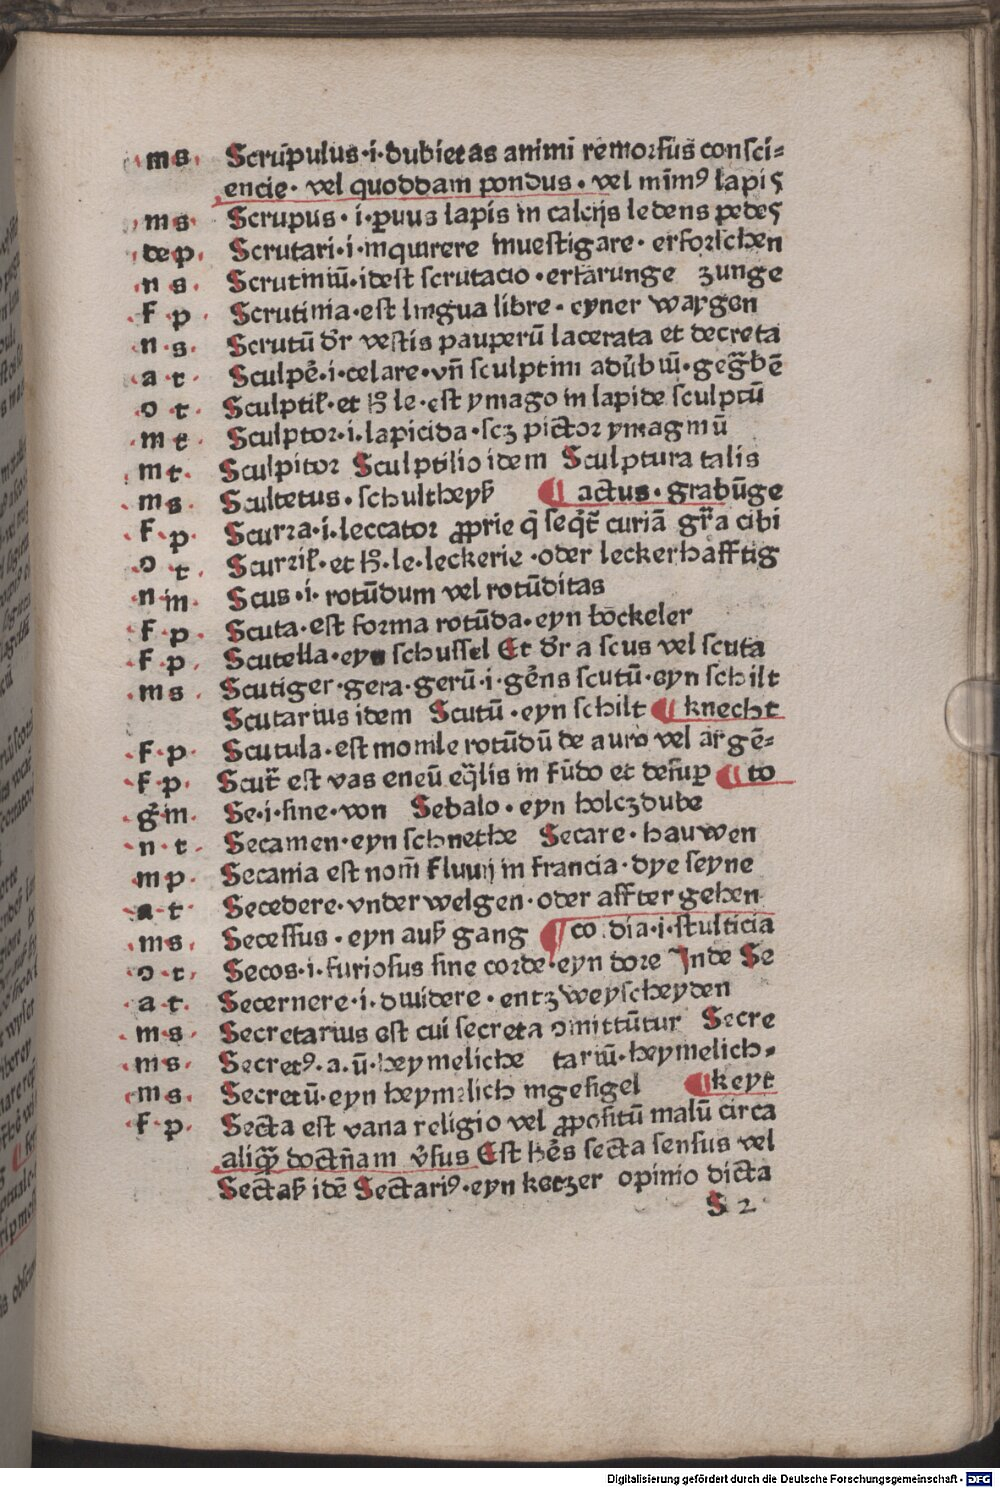 m s Scrup̄ulus·i·dubietas animi remorsus consci-
encie· vel quoddam pondus· vel mīmꝰ lapis
m s Scrupus·i·puus lapis in calcijs ledens pedes
de p Scrutari·i·inquirere inuestigare·erforschen
n s Scrutiniū·idest scrutacio·erfarunge zunge
f p Scrutinia·est lingua libre·eyner wagen
n s Scrutū dr̄ vestis pauperū lacerata et decreta
a t Sculpe᷑·i·celare·vn̄ sculptim adu᷑biū·
o t Sculptil᷑·et hͦ le·est ymago in lapide sculptū
m t Sculptor·i·lapicida·scz pictor ymaginū
m t Sculpitor Sculptilio idem Sculptura talis
m s Scultetus·schultheyß ¶ actus·grabūge
f p Scurra·i·leccator ꝓprie q̄ seqt̄ curiā gr̄a cibi
o t Scurril᷑·et hͦ·le·leckerie·oder leckerhafftig
n in Scus·i·rotūdum vel rotūditas
f p Scuta·est forma rotūda·eyn bockeler
f p Scutella·eyn schussel Et dr̄ a scus vel scuta
m s Scutiger·gera·gerū·i·ge᷑ns scutū·eyn schilt
Scutarius idem Scutū·eyn schilt ¶ knecht
f p Scutula·est monile rotūdū de auro vel argē-
f p Scut᷑ est vas eneū eq̄lis in fūdo et desuꝑ ¶ to
g᷑ in Se·i·sine·von Sebalo·eyn holczdube
n t Secamen·eyn schnethe Secare·hauwen
m p Secania est nom̄ fluuij in francia·dye seyne
a t Secedere·vnder welgen·oder affter gehen
m s Secessus·eyn auß gang ¶ co dia·i·stulticia
o t Secos·i·furiosus sine corde·eyn dore Inde Se
a t Secernere·i·diuidere·entzweyscheyden
m s Secretarius est cui secreta omittūtur Secre
m s Secretꝰ·a·ū·heymeliche tariū·heymelich-
m s Secretū·eyn heymelich ingesigel ¶ keyt
f p Secta est vana religio vel ꝓpositū malū circa
aliq̄ doctrīnam v᷑sus Est he᷑s secta sensus vel
Sectaß idē Sectariꝰ·eyn ketzer opinio dicta
S 2
Digitalisierung gefördert durch die Deutsche Forschungsgemeinschaft · DFG